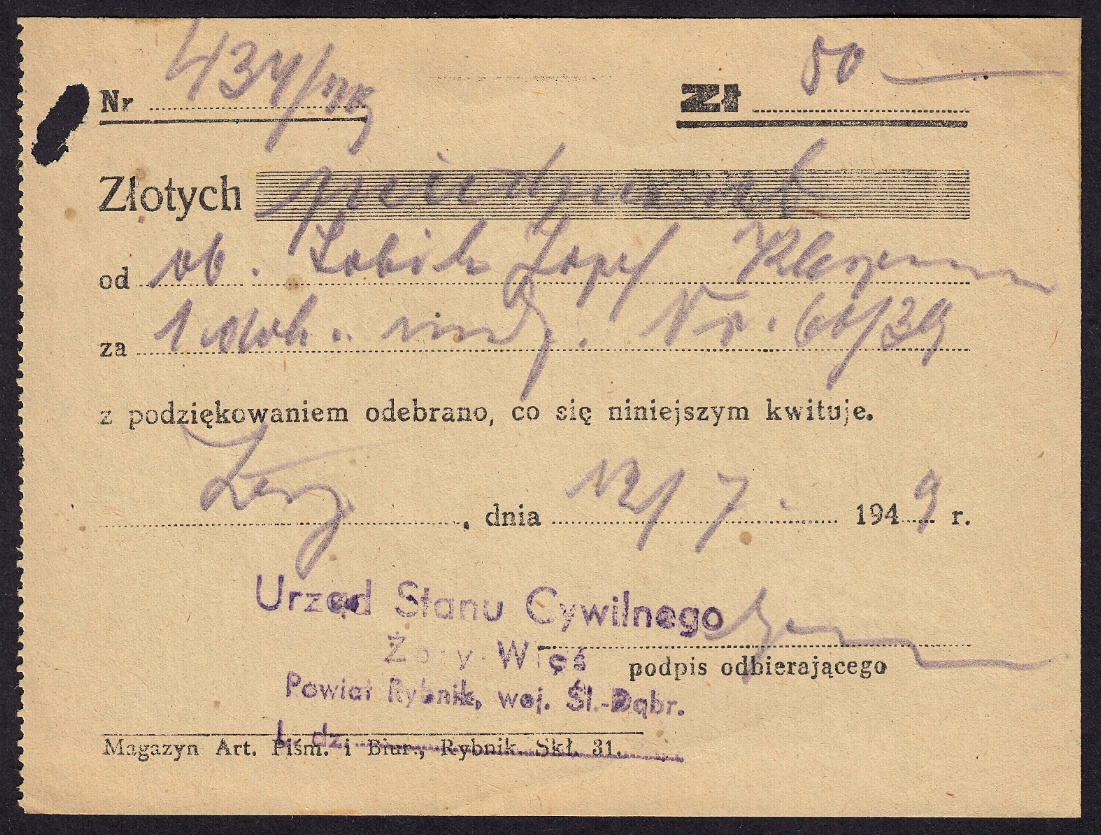 Nr 437/49 Zł 50 —
Złotych pięćdziesiąt
od ob. Lobik Józef
za 1 odph. Nr. 60/39
z podziękowaniem odebrano, co się niniejszym kwituje.
Żory, dnia 12/7. 1949 r.
Urząd Stanu Cywilnego
Żory-Wieś
podpis odbierającego
Powiat Rybnik, woj. Śl.-Dąbr.
L. dz.
Magazyn Art. Piśm. i Biur., Rybnik. Skł. 31.